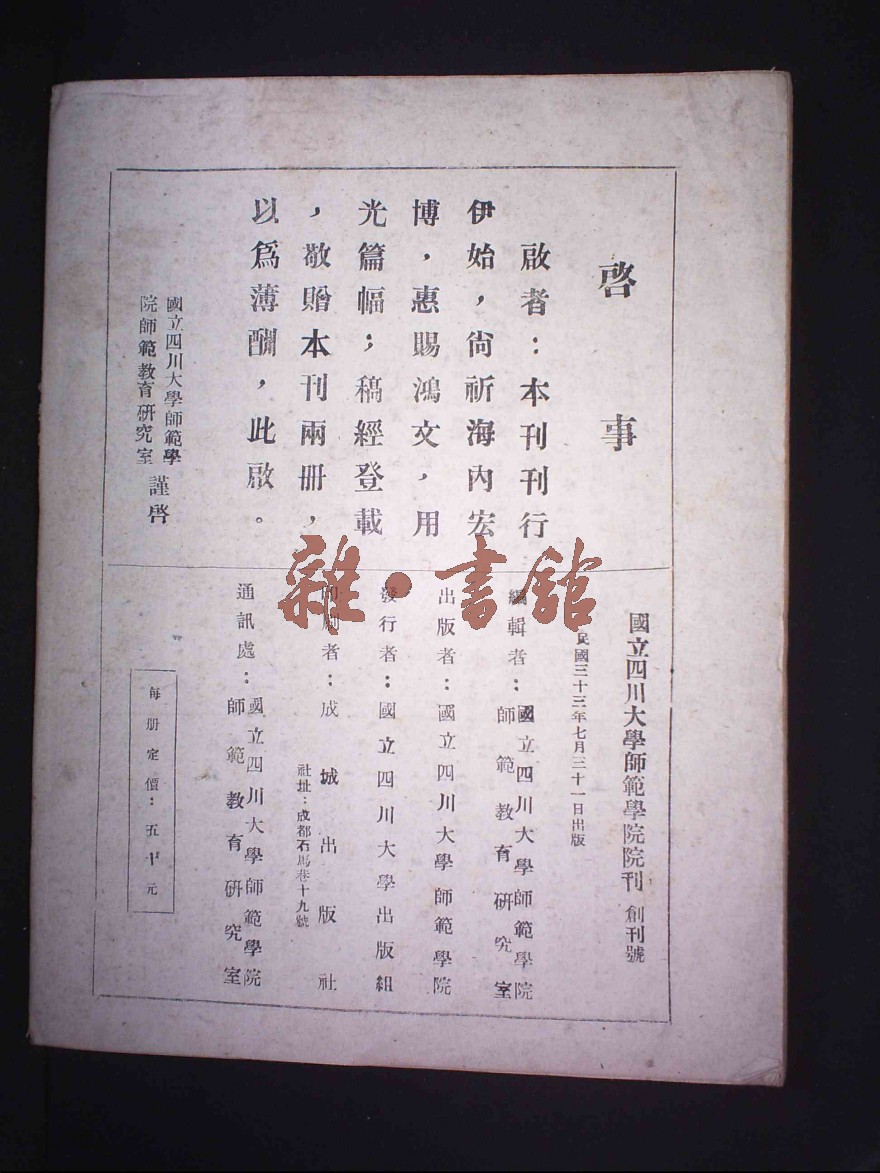 啓事
啟者：本刊刊行
伊始，尙祈海內宏
博，惠賜鴻文，用
光篇幅；稿經登載
，敬贈本刊兩册，
以爲薄酬，此啟。
國立四川大學師範學
院師範教育研究室
謹啓
國立四川大學師範學院院刊 創刊號
民國三十三年七月三十一日出版
編輯者：國立四川大學師範學院
師範教育研究室
出版者：國立四川大學師範學院
發行者：國立四川大學出版組
印刷者：成城出版社
社址：成都石馬巷十九號
通訊處：國立四川大學師範學院
師範教育研究室
每册定價：五十元
雜·書館